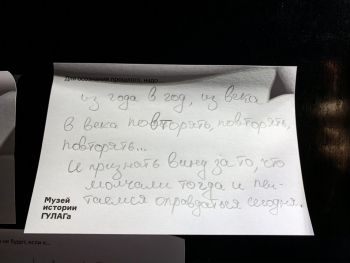 Для осознания прошлого, надо...
из года в год, из века
в века повторять, повторять,
повторять...
И признать вину за то, что
молчали тогда и пен-
таемся оправдаться сегодня.
Музей
истории
ГУЛАГа
не будет, если я...